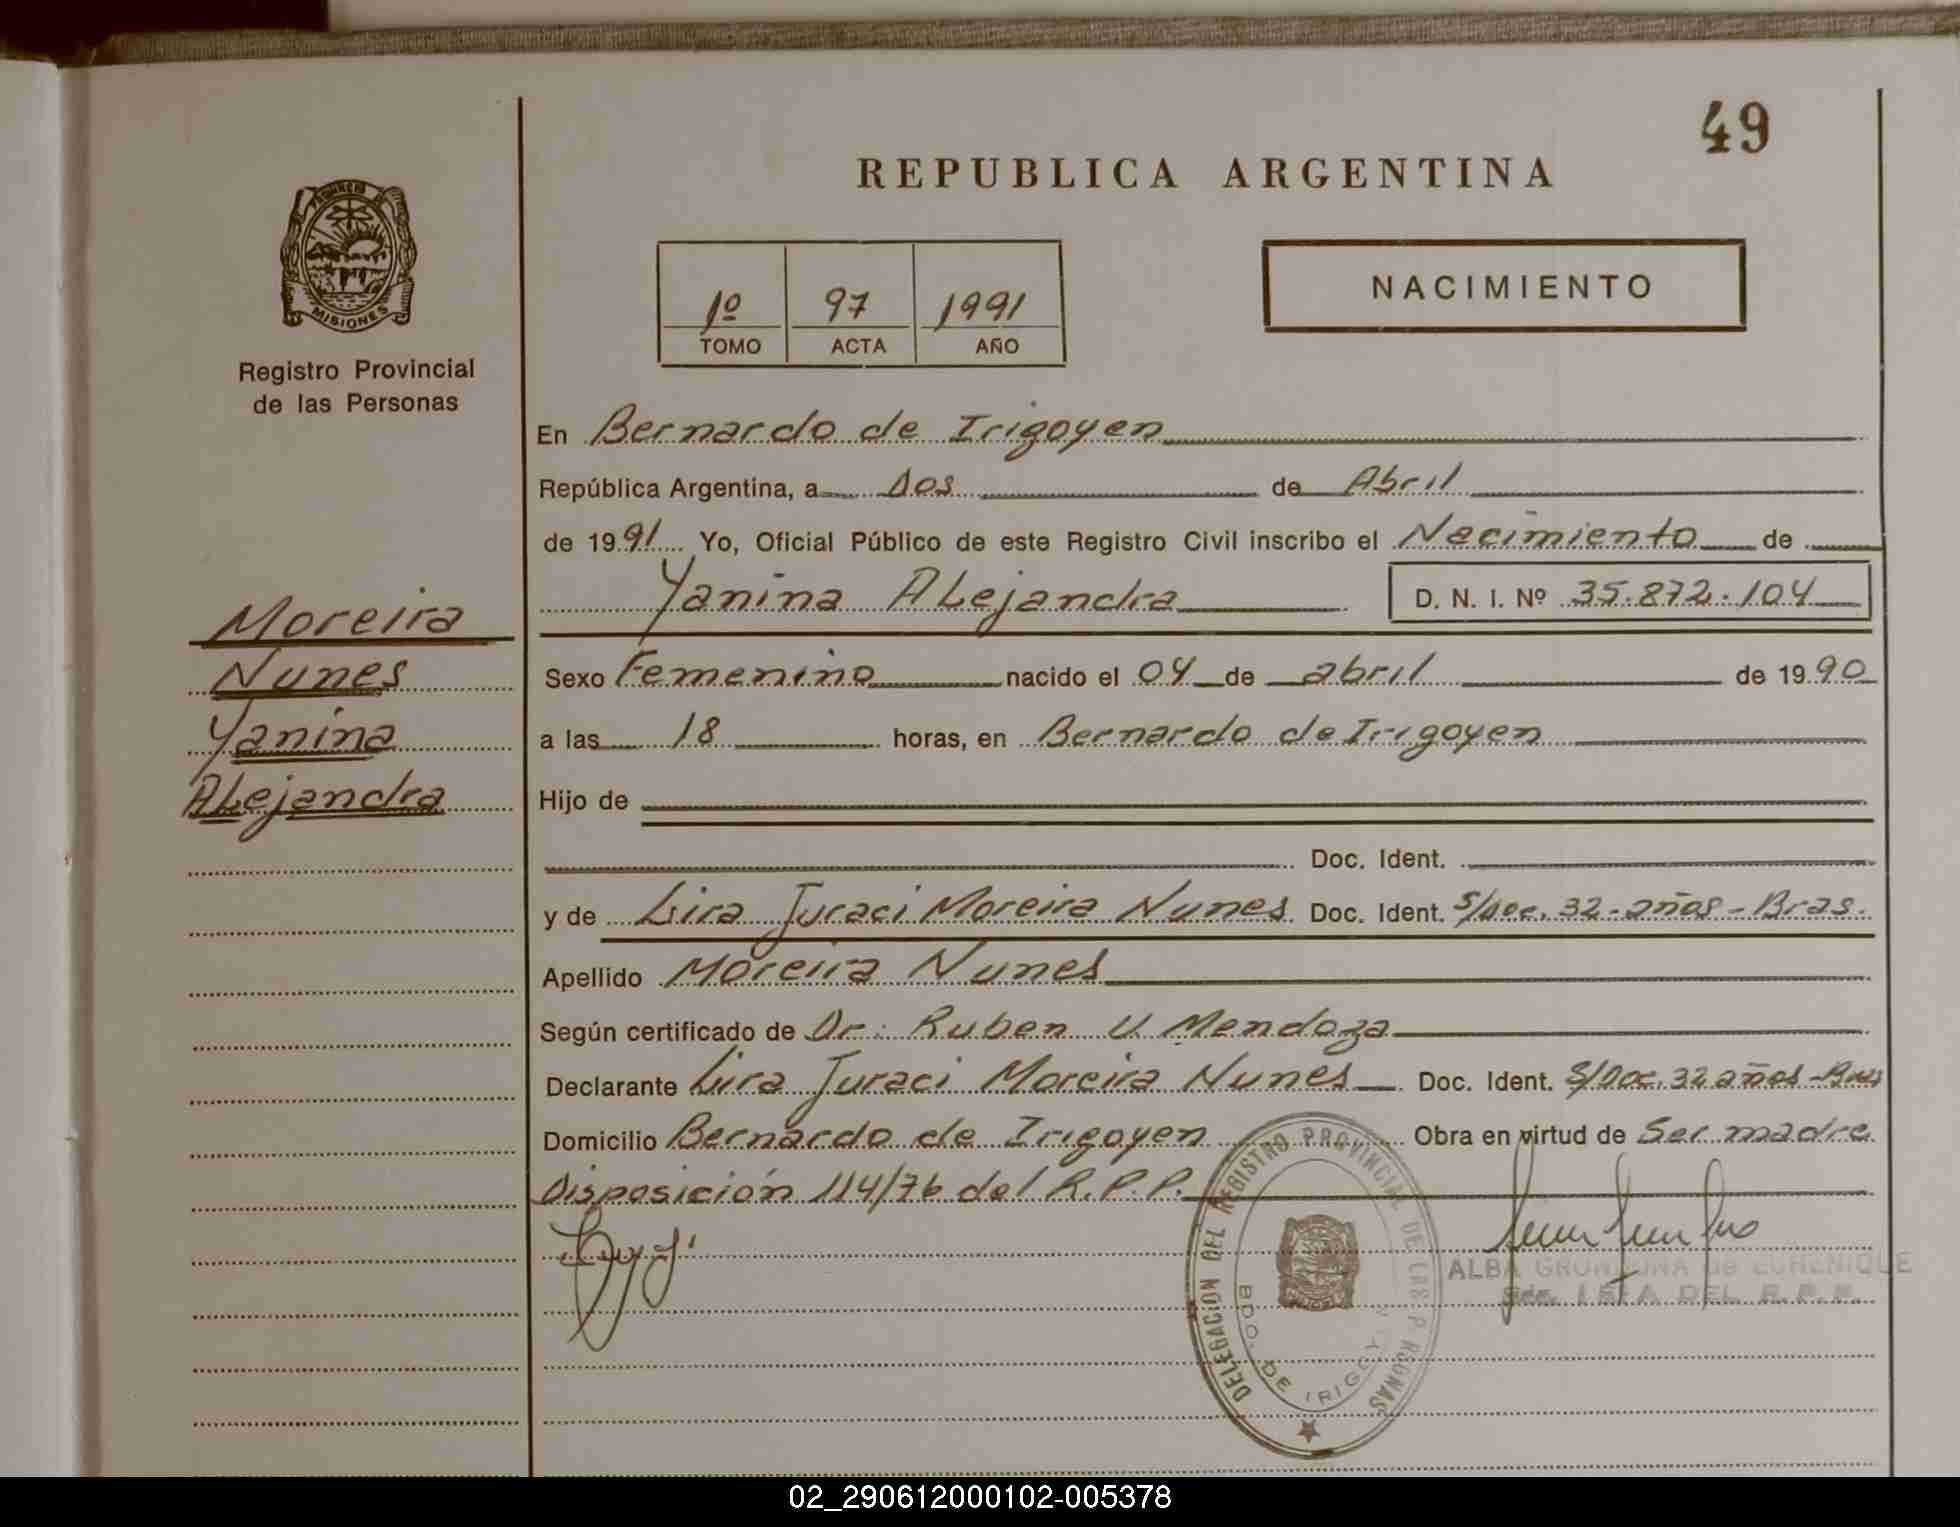 49
REPUBLICA ARGENTINA
PROVINCIA
MISIONES
Registro Provincial
de las Personas
1º 97 1991
TOMO ACTA AÑO
NACIMIENTO
En Bernardo de Irigoyen
República Argentina, a Dos de Abril
de 1991 Yo, Oficial Público de este Registro Civil inscribo el Nacimiento de
Yanina ALejandra D. N. I. Nº 35.872.104
Moreira
Nunes
Yanina
ALejandra
Sexo Femenino nacido el 04 de abril de 1990
a las 18 horas, en Bernardo de Irigoyen
Hijo de
Doc. Ident.
y de Lira Juraci Moreira Nunes Doc. Ident. S/Doc. 32-años-Bras.
Apellido Moreira Nunes
Según certificado de Dr. Ruben U. Mendoza
Declarante Lira Juraci Moreira Nunes Doc. Ident. S/Doc. 32 años-Bras
Domicilio Bernardo de Irigoyen Obra en virtud de Ser madre
Disposición 114/76 del R.P.P.
DELEGACION DEL REGISTRO PROVINCIAL DE LAS P RSONAS
BDO. DE IRIGOY
ALBA GRONDONA de ECHENIQUE
DEL R.P.P.
02_290612000102-005378